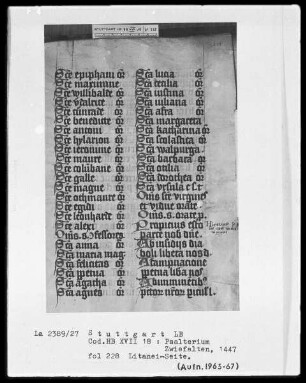 Sce epiphani or
Sce maximine
Sce willibalde or
Sce vdalrice or
Sce cunrade or
Sce benedicte or
Sce antoni or
Sce hylarion or
Sce ieronime or
Sce maure or
Sce columbane or
Sce galle or
Sce magne or
Sce othmare or
Sce egidi or
Sce leonharde or
Sce alexi or
Oms s. 9fessores
Sca anna or
Sca maria mag
Sca felicitas or
Sca petronia or
Sca agatha or
Sca agnes or
Sca lucia or
Sca cecilia or
Sca iustina or
Sca iuliana or
Sca afra or
Sca margareta
Sca katharina or
Sca scolastica or
Sca walpurga or
Sca barbara or
Sca otilia or
Sca dorothea or
Sca vrsula c s r
Oms sce virgines
et vidue orate
Oms s. orate p.
Propicius esto
parce nos dne
Ab insidijs dia
boli libera nos d
A dampnacione
petua liba nos
Ab imminentib9
La 2389/27 Stuttgart LB
Cod.HB XVII 18 : Psalterium
Zwiefalten, 1447
fol 228 Litanei-Seite.
(Aufn.1963-67)